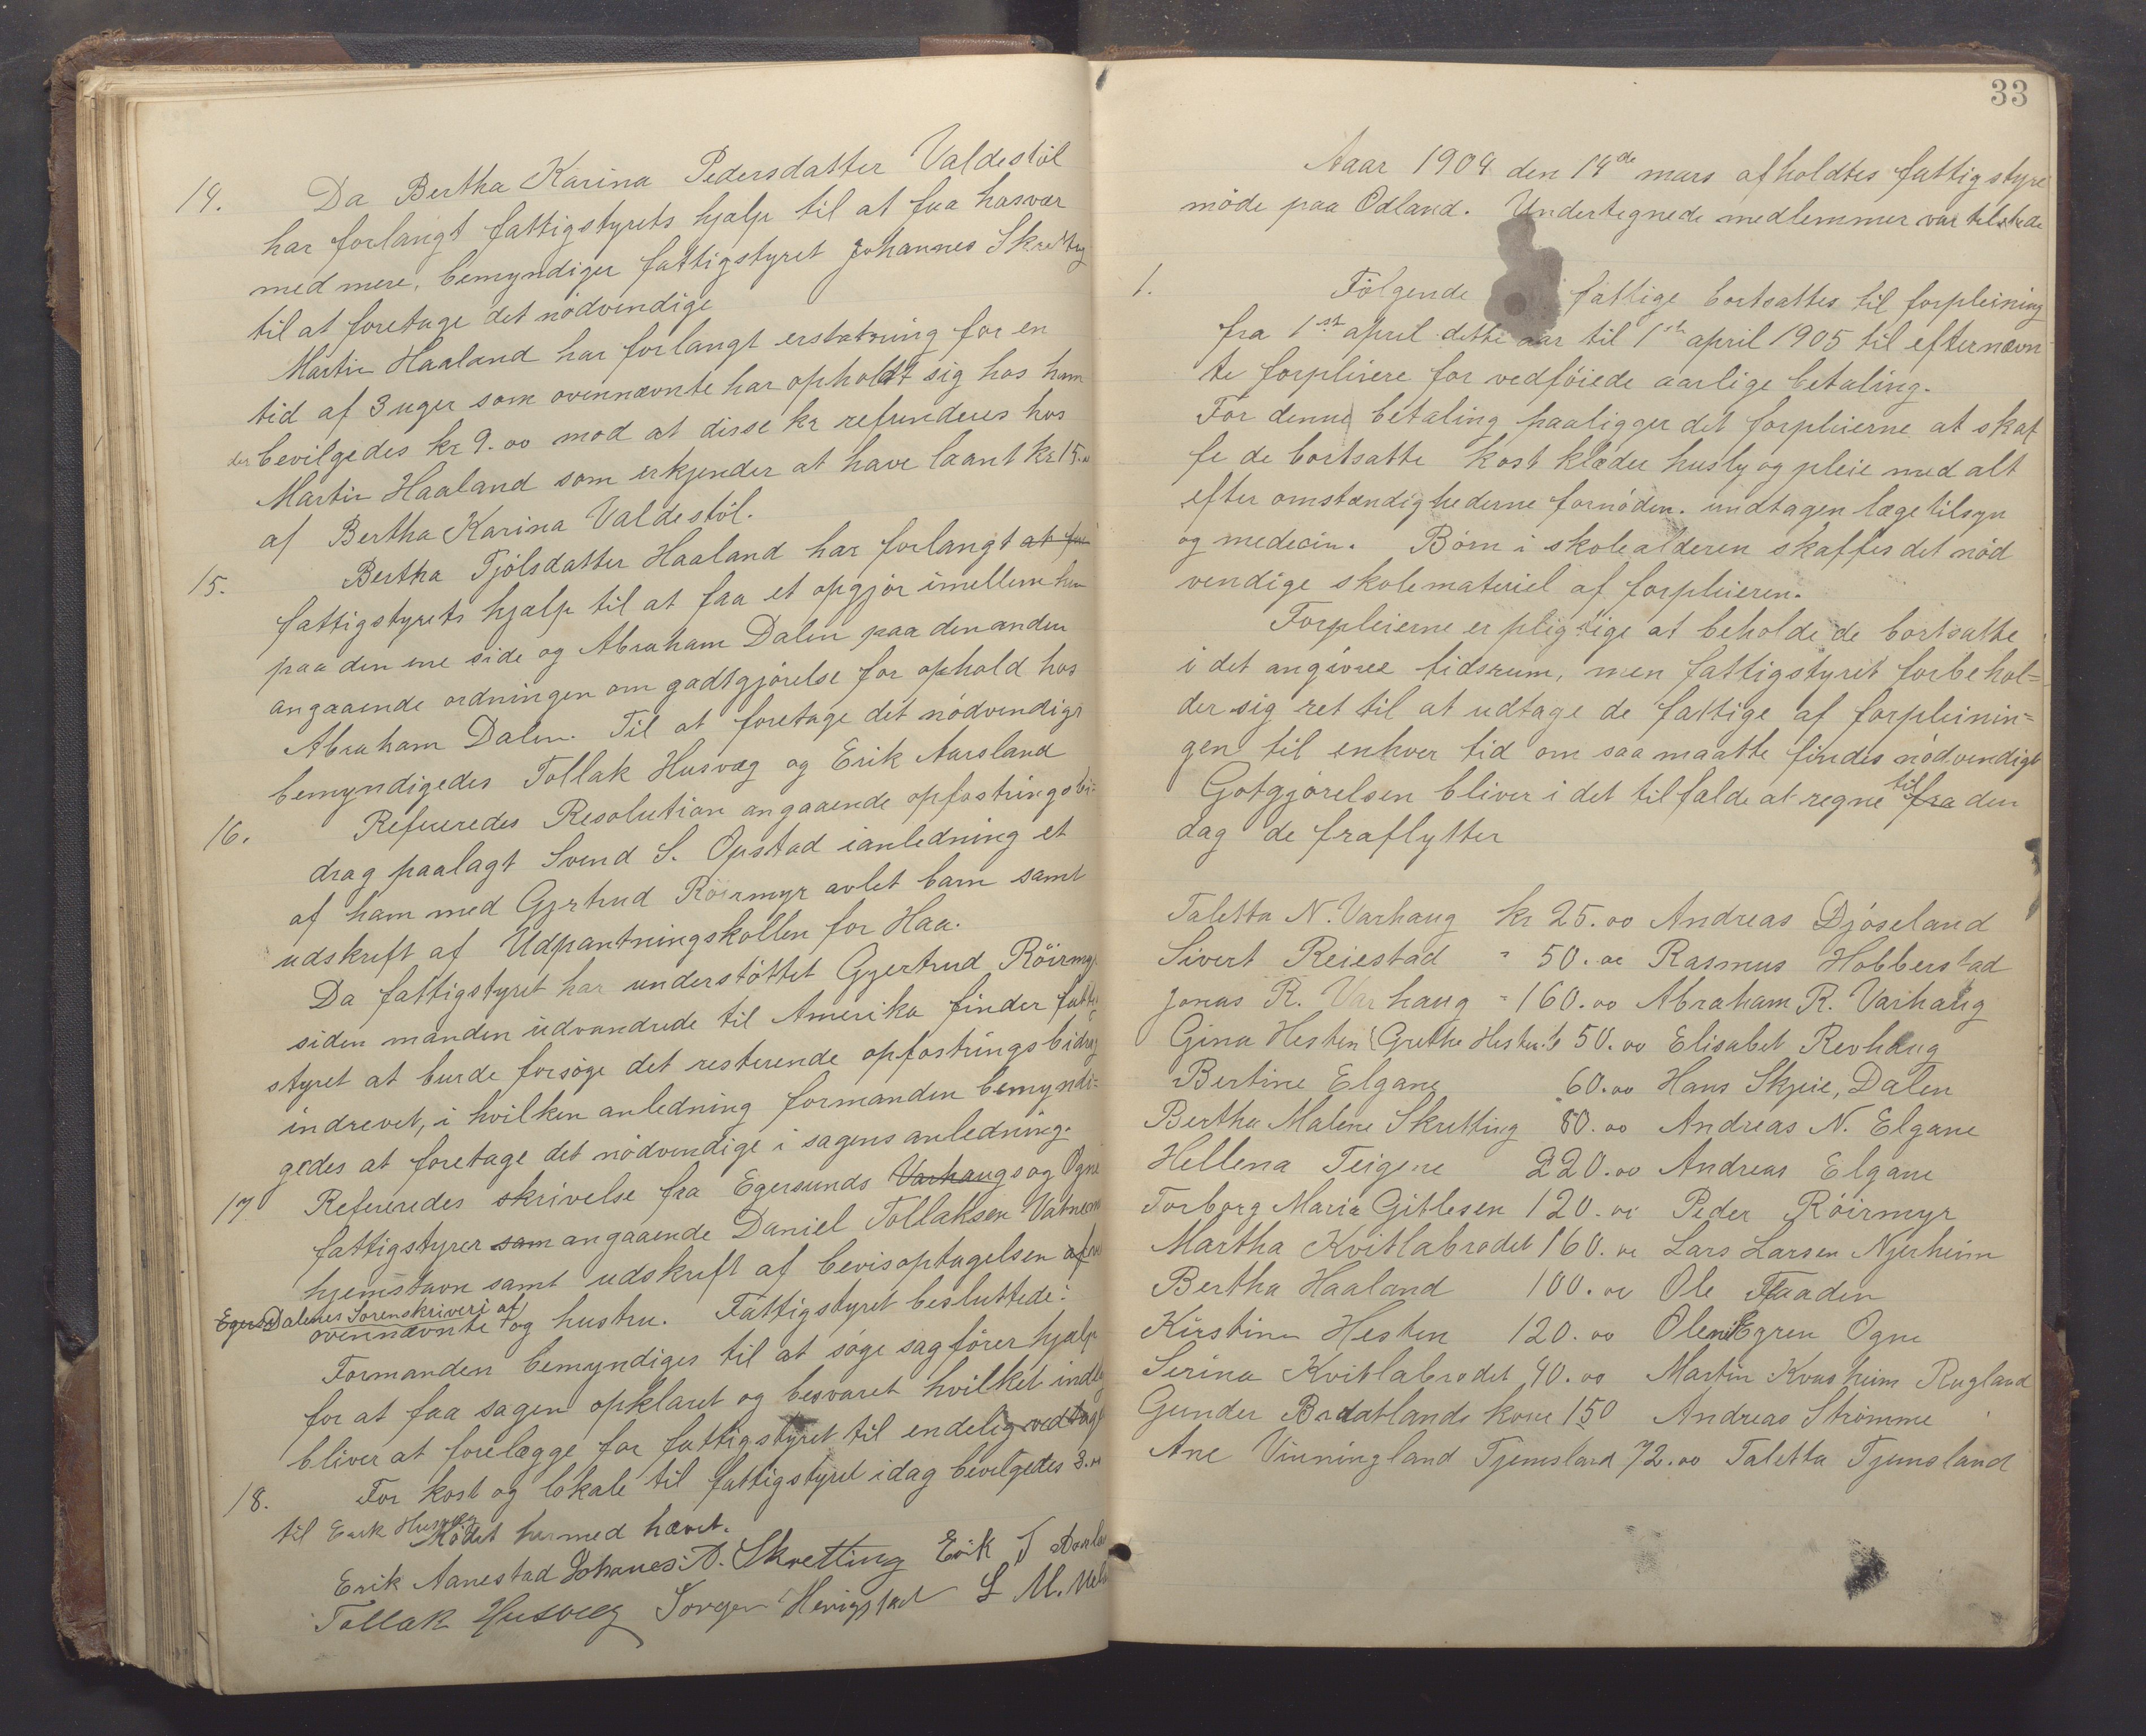 14. Da Bertha Karina Pedersdatter Valdestøl
har forlangt fattigstyrets hjælp til at faa hosvær
med mere, bemyndiger fattigstyret Johannes Skretting
til at foretage det nødvendige
Martin Haaland har forlangt erstatning for en
tid af 3 uger som ovennævnte har opholdt sig hos ham
der bevilgedes kr 9.00 mod at disse kr refunderes hos
Martin Haaland som erkjender at have laant kr 15.00
af Bertha Karina Valdestøl.
15. Bertha Tjølsdatter Haaland har forlangt at faa
fattigstyrets hjælp til at faa et opgjør imellem hen
paa den ene side og Abraham Dalen paa den anden
angaaende ordningen om godtgjørelse for ophold hos
Abraham Dalen. Til at foretage det nødvendige
bemyndigedes Tollak Husvæg og Erik Aarsland
16. Refereredes Resolution angaaende opfostringsbi-
drag paalagt Svend S. Opstad ianledning et
af ham med Gjertrud Röirmyr avlet barn samt
udskrift af Udpantningskollen for Haa.
Da fattigstyret har understøttet Gjertrud Röirmyr
siden manden udvandrede til Amerika finder fattig
styret at burde forsøge det resterende opfostringsbidrag
indrevet, i hvilken anledning formanden bemyndi=
gedes at foretage det nødvendige i sagens anledning.
17 Refereredes skrivelse fra Egersunds Varhaugs og Ogne
fattigstyrer som angaaende Daniel Tollaksen Vatnemo
hjemstavn samt udskrift af bevisoptagelsen
Egers Dalenes Sorenskriveri af
ovennævnte og hustru. Fattigstyret besluttede:
Formanden bemyndiges til at søge sagførerhjælp
for at faa sagen opklaret og besvaret hvilket indlæg
bliver at forelægge for fattigstyret til endelig vedtagelse
18. For kost og lokale til fattigstyret idag bevilgedes 3.00
til Eark Husvæg
Mødet hermed hævet.
Erik Aanestad Johanes A. Skretting Erik T Aarsland
Tollak Husveg Sørger Herigstad L M.
33
Aaar 1904 den 14de mars afholdtes fattigstyre
møde paa Odland. Undertegnede medlemmer var tilstede
1. Følgende fattige bortsattes til forpleining
fra 1st april dette aar til 1st april 1905 til efternævn
te forpleiere for vedføiede aarlige betaling.
For denne betaling paaligger det forpleierne at skaf
fe de bortsatte kost klæder husly og pleie med alt
efter omstændighederne fornøden. undtagen lægetilsyn
og medecin. Børn i skolealderen skaffes det nød
vendige skolemateriel af forpleieren.
Forpleierne er pligtige at beholde de bortsatte
i det angivne tidsrum, men fattigstyret forbehol=
der sig ret til at udtage de fattige af forpleinin=
gen til enhver tid om saa maatte findes nødvendigt
Gotgjørelsen bliver i det tilfalde at regne til fra den
dag de fraflytter
Taletta N. Varhaug kr 25.00 Andreas Djøseland
Sivert Reiestad " 50.00 Rasmus Hobberstad
Jonas R. Varhaug " 160.00 Abraham R. Varhaug
Gina Hesten (Grethe Hesten's 50.00 Elisabet Revhaug
Bertine Elgane 60.00 Hans Skjeie, Dalen
Bertha Malene Skretting 80.00 Andreas N. Elgane
Hellena Teigene 220.00 Andreas Elgane
Torborg Maria Gitlesen 120.00 Peder Röirmyr
Martha Kvitlabrodet 160.00 Lars Larsen Njerheim
Bertha Haaland 100.00 Ole Faaden
Kirstine Hesten 120.00 Oleni Egren Ogne
Serina Kvitlabrodet 40.00 Martin Kvasheim Rugland
Gunder Bratlands kone 150 Andreas Strømme
Ane Vinningland Tjemsland 72.00 Taletta Tjemsland